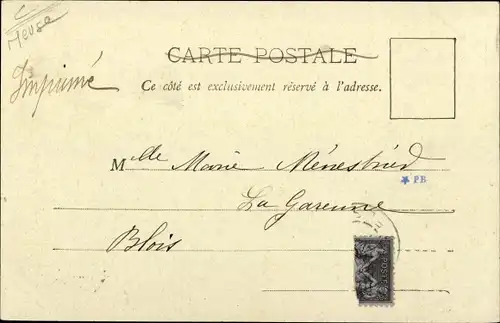 C
Meuse
Imprimé
CARTE POSTALE
Ce côté est exclusivement réservé à l'adresse.
Mlle Marie Ménestried
* PB
La Garenne
Blois
POSTES